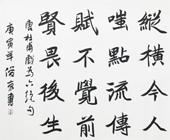 縱橫今人
嗤點流傳
賦不覺前
賢畏後生
杜甫戲為六絕句
庚寅年
書